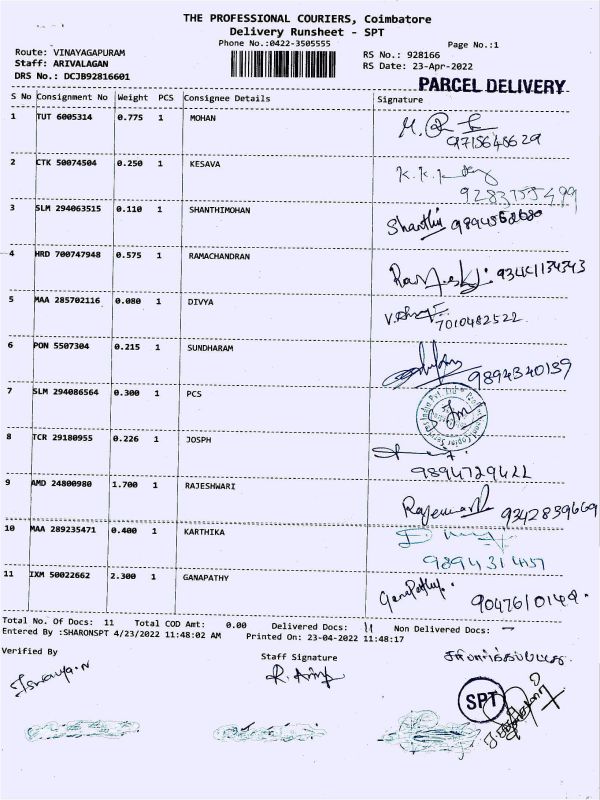 THE PROFESSIONAL COURIERS, Coimbatore
Delivery Runsheet - SPT
Phone No.:0422-3505555
Page No.:1
Route: VINAYAGAPURAM
Staff: ARIVALAGAN
DRS No.: DCJB92816601
RS No.: 928166
RS Date: 23-Apr-2022
PARCEL DELIVERY
S No Consignment No Weight PCS Consignee Details Signature
1 TUT 6005314 0.775 1 MOHAN
9715648629
2 CTK 50074504 0.250 1 KESAVA
9283155499
3 SLM 294063515 0.110 1 SHANTHIMOHAN
Shanthi
4 HRD 700747948 0.575 1 RAMACHANDRAN
9344134343
5 MAA 285702116 0.080 1 DIVYA
7010482522
6 PON 5507304 0.215 1 SUNDHARAM
9894340139
7 SLM 294086564 0.300 1 PCS
8 TCR 29180955 0.226 1 JOSPH
9894729422
9 AMD 24800980 1.700 1 RAJESHWARI
9342839669
10 MAA 289235471 0.400 1 KARTHIKA
11 IXM 50022662 2.300 1 GANAPATHY
Ganapathy. 9047610148.
Total No. Of Docs: 11 Total COD Amt: 0.00 Delivered Docs: 11 Non Delivered Docs: -
Entered By :SHARONSPT 4/23/2022 11:48:02 AM Printed On: 23-04-2022 11:48:17
Verified By
Staff Signature
SPT